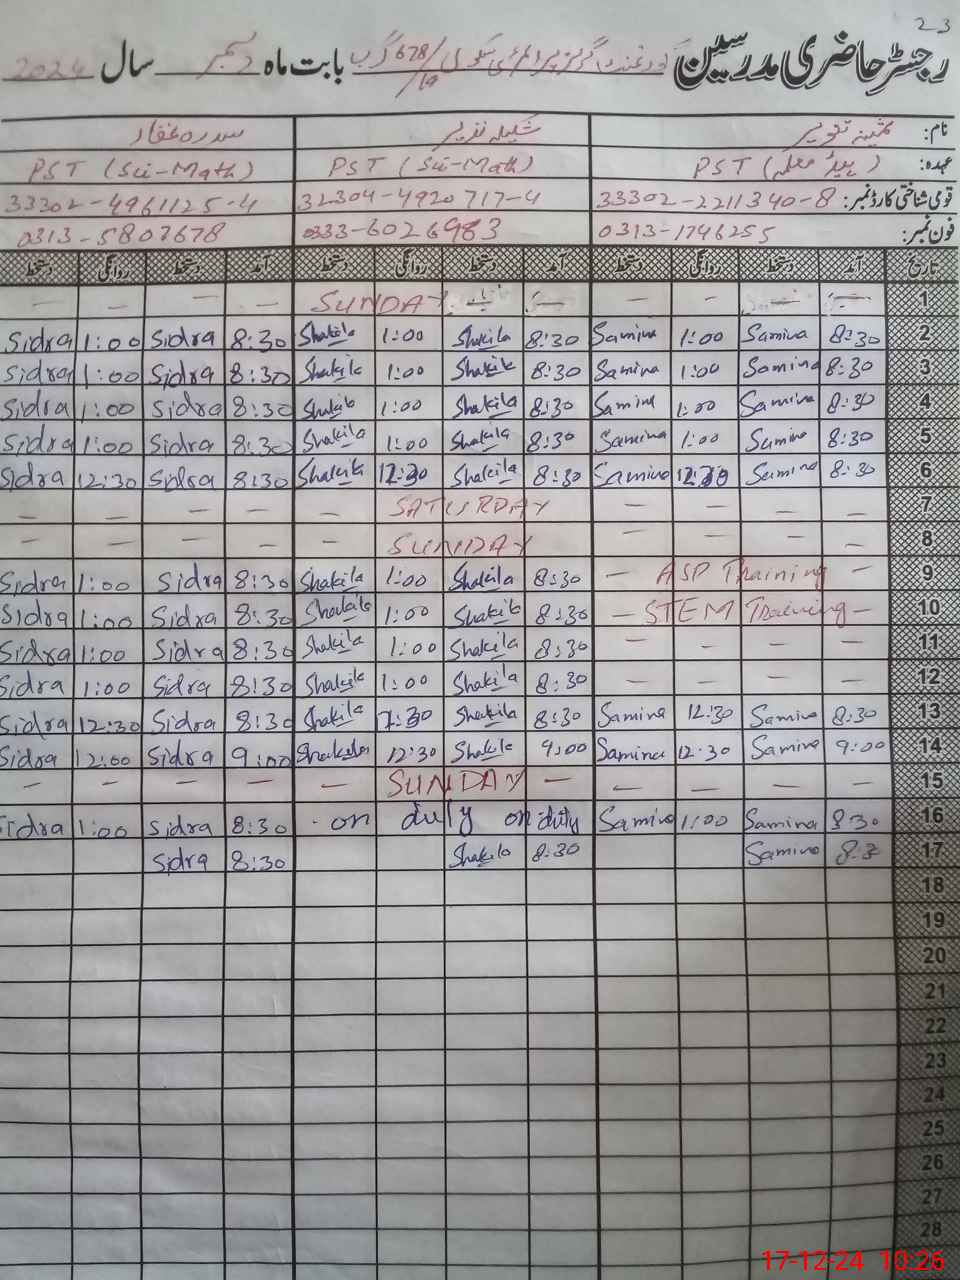 23
رجسٹر حاضری مدرسین گورنمنٹ گرلز پرائمری سکول 678/19 گ ب بابت ماہ دسمبر سال 2024
نام: ثمینہ تنویر شکیلہ نذیر سدرہ غفار
عہدہ: PST (ہیڈ معلمہ) PST (Sci-Math) PST (Sci-Math)
قومی شناختی کارڈ نمبر: 33302-2211340-8 32304-4920717-4 33302-4961125-4
فون نمبر: 0313-1746255 0333-6026983 0313-5807678
تاریخ آمد دستخط روانگی دستخط آمد دستخط روانگی دستخط آمد دستخط روانگی دستخط
1 — — — — SUNDAY — — — —
2 8:30 Samina 1:00 Samina 8:30 Shakila 1:00 Shakila 8:30 Sidra 1:00 Sidra
3 8:30 Samina 1:00 Samina 8:30 Shakila 1:00 Shakila 8:30 Sidra 1:00 Sidra
4 8:30 Samina 1:00 Samina 8:30 Shakila 1:00 Shakila 8:30 Sidra 1:00 Sidra
5 8:30 Samina 1:00 Samina 8:30 Shakila 1:00 Shakila 8:30 Sidra 1:00 Sidra
6 8:30 Samina 12:30 Samina 8:30 Shakila 12:30 Shakila 8:30 Sidra 12:30 Sidra
7 — — — — SATURDAY — — — — —
8 — — — — SUNDAY — — — — —
9 — ASP Training — 8:30 Shakila 1:00 Shakila 8:30 Sidra 1:00 Sidra
10 — STEM Training — 8:30 Shakila 1:00 Shakila 8:30 Sidra 1:00 Sidra
11 — — — — 8:30 Shakila 1:00 Shakila 8:30 Sidra 1:00 Sidra
12 — — — — 8:30 Shakila 1:00 Shakila 8:30 Sidra 1:00 Sidra
13 8:30 Samina 12:30 Samina 8:30 Shakila 1:30 Shakila 8:30 Sidra 12:30 Sidra
14 9:00 Samina 12:30 Samina 9:00 Shakila 12:30 Shakila 9:00 Sidra 12:00 Sidra
15 — — — — — SUNDAY — — — — —
16 8:30 Samina 1:00 Samina on duty on duty 8:30 Sidra 1:00 Sidra
17 8:3 Samina 8:30 Shakila 8:30 Sidra
18
19
20
21
22
23
24
25
26
27
28
17-12-24 10:26